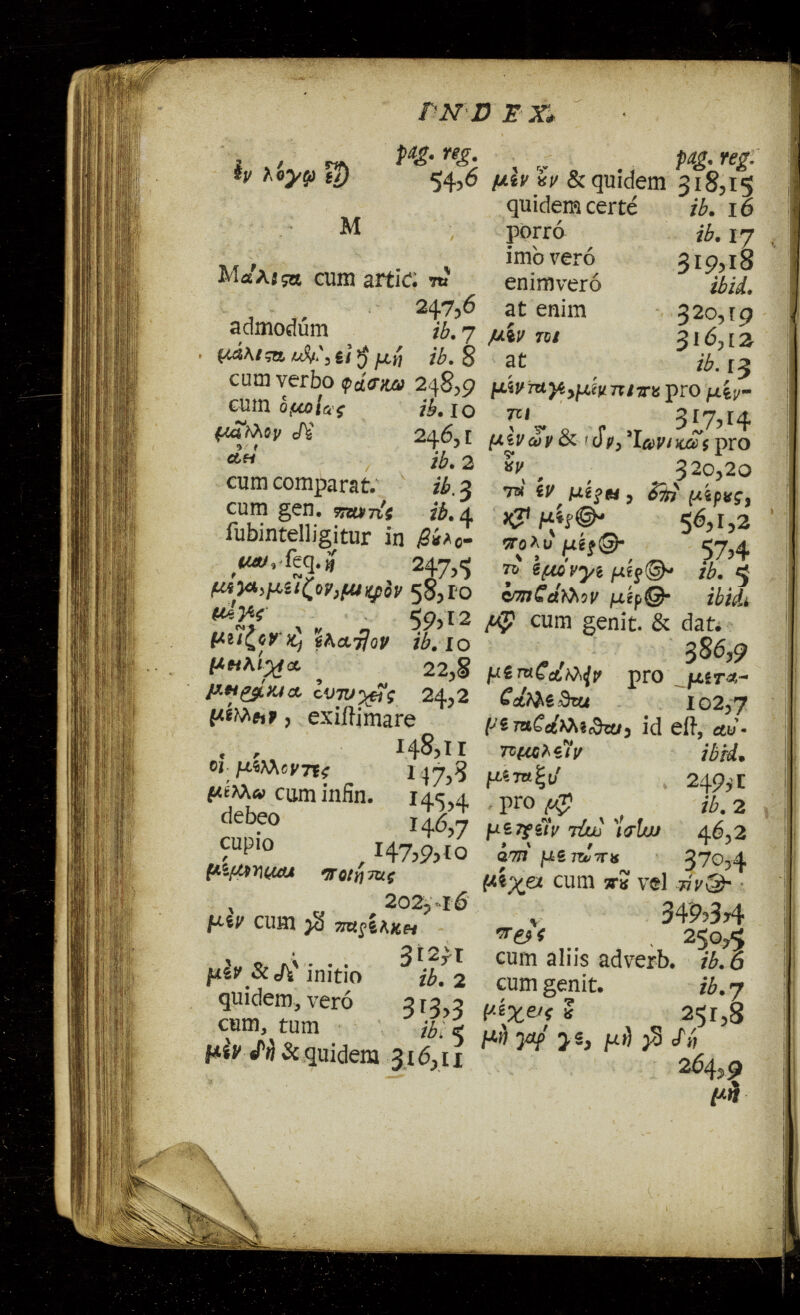 INDEX.
pag. reg.
ἐν λόγῳ 54,6
M
Μάλιστα cum artic. τὰ
247,6
admodúm ib. 7
μάλιστα μὲν, εἰ δὲ μὴ ib. 8
cum verbo φάσκω 248,9
cum ὁμοίως ib. 10
μᾶλλον δὲ 246,1
ἀεὶ ib. 2
cum comparat. ib. 3
cum gen. παντὸς ib. 4
subintelligitur in βούλο-
μαι, seq. ἢ 247,5
μέγα, μεῖζον, μικρὸν 58,10
μέγας 59,12
μεῖζον καὶ ἔλαττον ib. 10
22,8
24,2
μέλλειν, existimare
148,11
οἱ μέλλοντες 147,8
μέλλω cum infin. 145,4
debeo 146,7
cupio 147,9,10
μέμνημαι ποιήσας
202,16
μὲν cum γὰρ παρέλκει
312,1
μὲν & δὲ initio ib. 2
quidem, veró 313,3
cum, tum ib. 5
μὲν δὴ & quidem 316,11
pag. reg.
μὲν οὖν & quidem 318,15
quidem certé ib. 16
porró ib. 17
imò veró 319,18
enimveró ibid.
at enim 320,19
μέν τοι 316,12
at ib. 13
pro μέν-
τοι 317,14
μὲν ὦν & Ἰωνικῶς pro
οὖν 320,20
τὰ ἐν μέρει, ἐπὶ μέρους,
καὶ μέρος 56,1,2
πολὺ μέρος 57,4
τὸ ἐμόνγε μέρος ib. 5
ἐπιβάλλον μέρος ibid.
μετὰ cum genit. & dat.
386,9
μεταβάλλειν pro μετα-
βάλλεσθαι 102,7
μεταβάλλεσθαι, id est, αὐ-
τομολεῖν ibid.
μεταξὺ 249,1
pro μετὰ ib. 2
μετρεῖν τὴν ἴσην 46,2
370,4
μέχρι cum τοῦ vel τινος
349,3,4
πρὸς 250,5
cum aliis adverb. ib. 6
cum genit. ib. 7
μέχρις οὗ 251,8
μὴ γάρ γε, μὴ γὰρ δὴ
264,9
μὴ